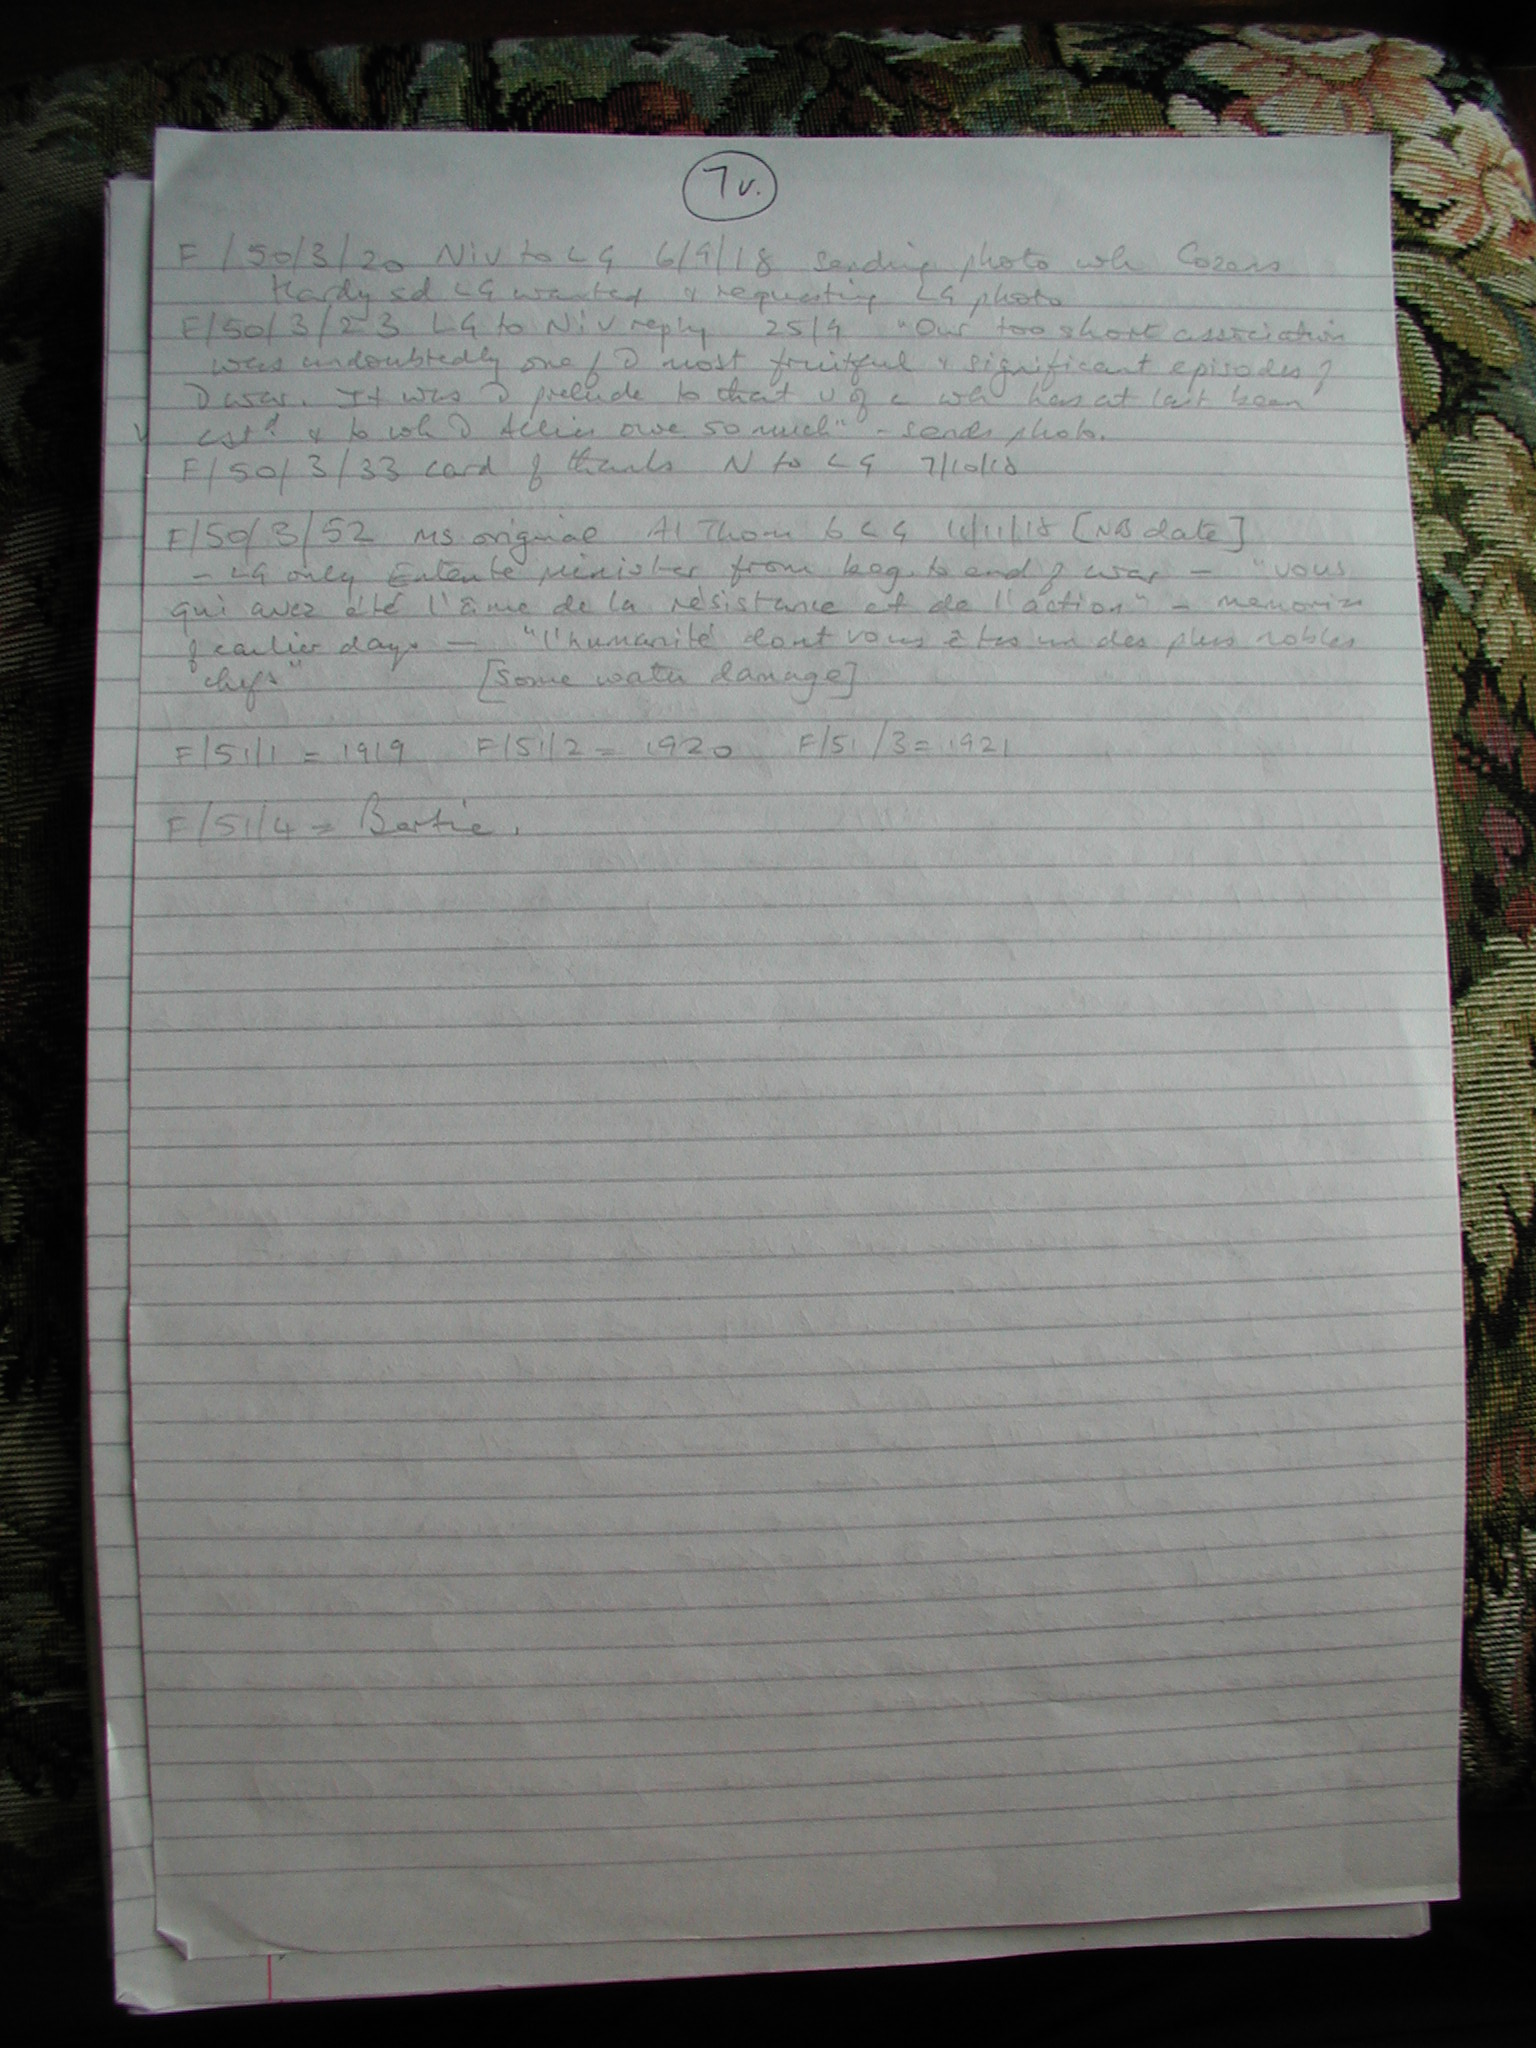 7v.
F/50/3/20 Niv to LG 6/9/18 sending photo wh Cozens
Hardy sd LG wanted & requesting LG photo
F/50/3/23 LG to Niv reply 25/9 "Our too short association
was undoubtedly one of most fruitful & significant episodes of
war. It was prelude to that u of c wh has at last been
estd & to wh Allies owe so much" - sends photo.
F/50/3/33 card of thanks N to LG 7/10/18
F/50/3/52 MS original Al Thom to LG 11/11/18 [NB date]
- LG only Entente minister from beg. to end of war - "vous
qui avez été l'âme de la résistance et de l'action" - memories
of earlier days - "l'humanité dont vous êtes un des plus nobles
chefs" [some water damage]
F/51/1 = 1919 F/51/2 = 1920 F/51/3 = 1921
F/51/4 = Bertie.